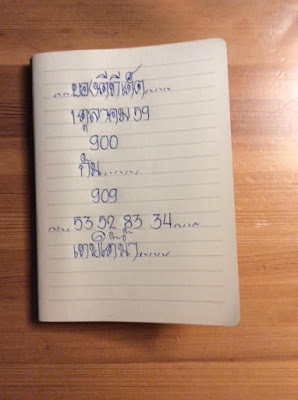 ...ของดีทีเด็ด......
1 ตุลาคม 59
900
กัน.......
909
.....53 52 83 34.....